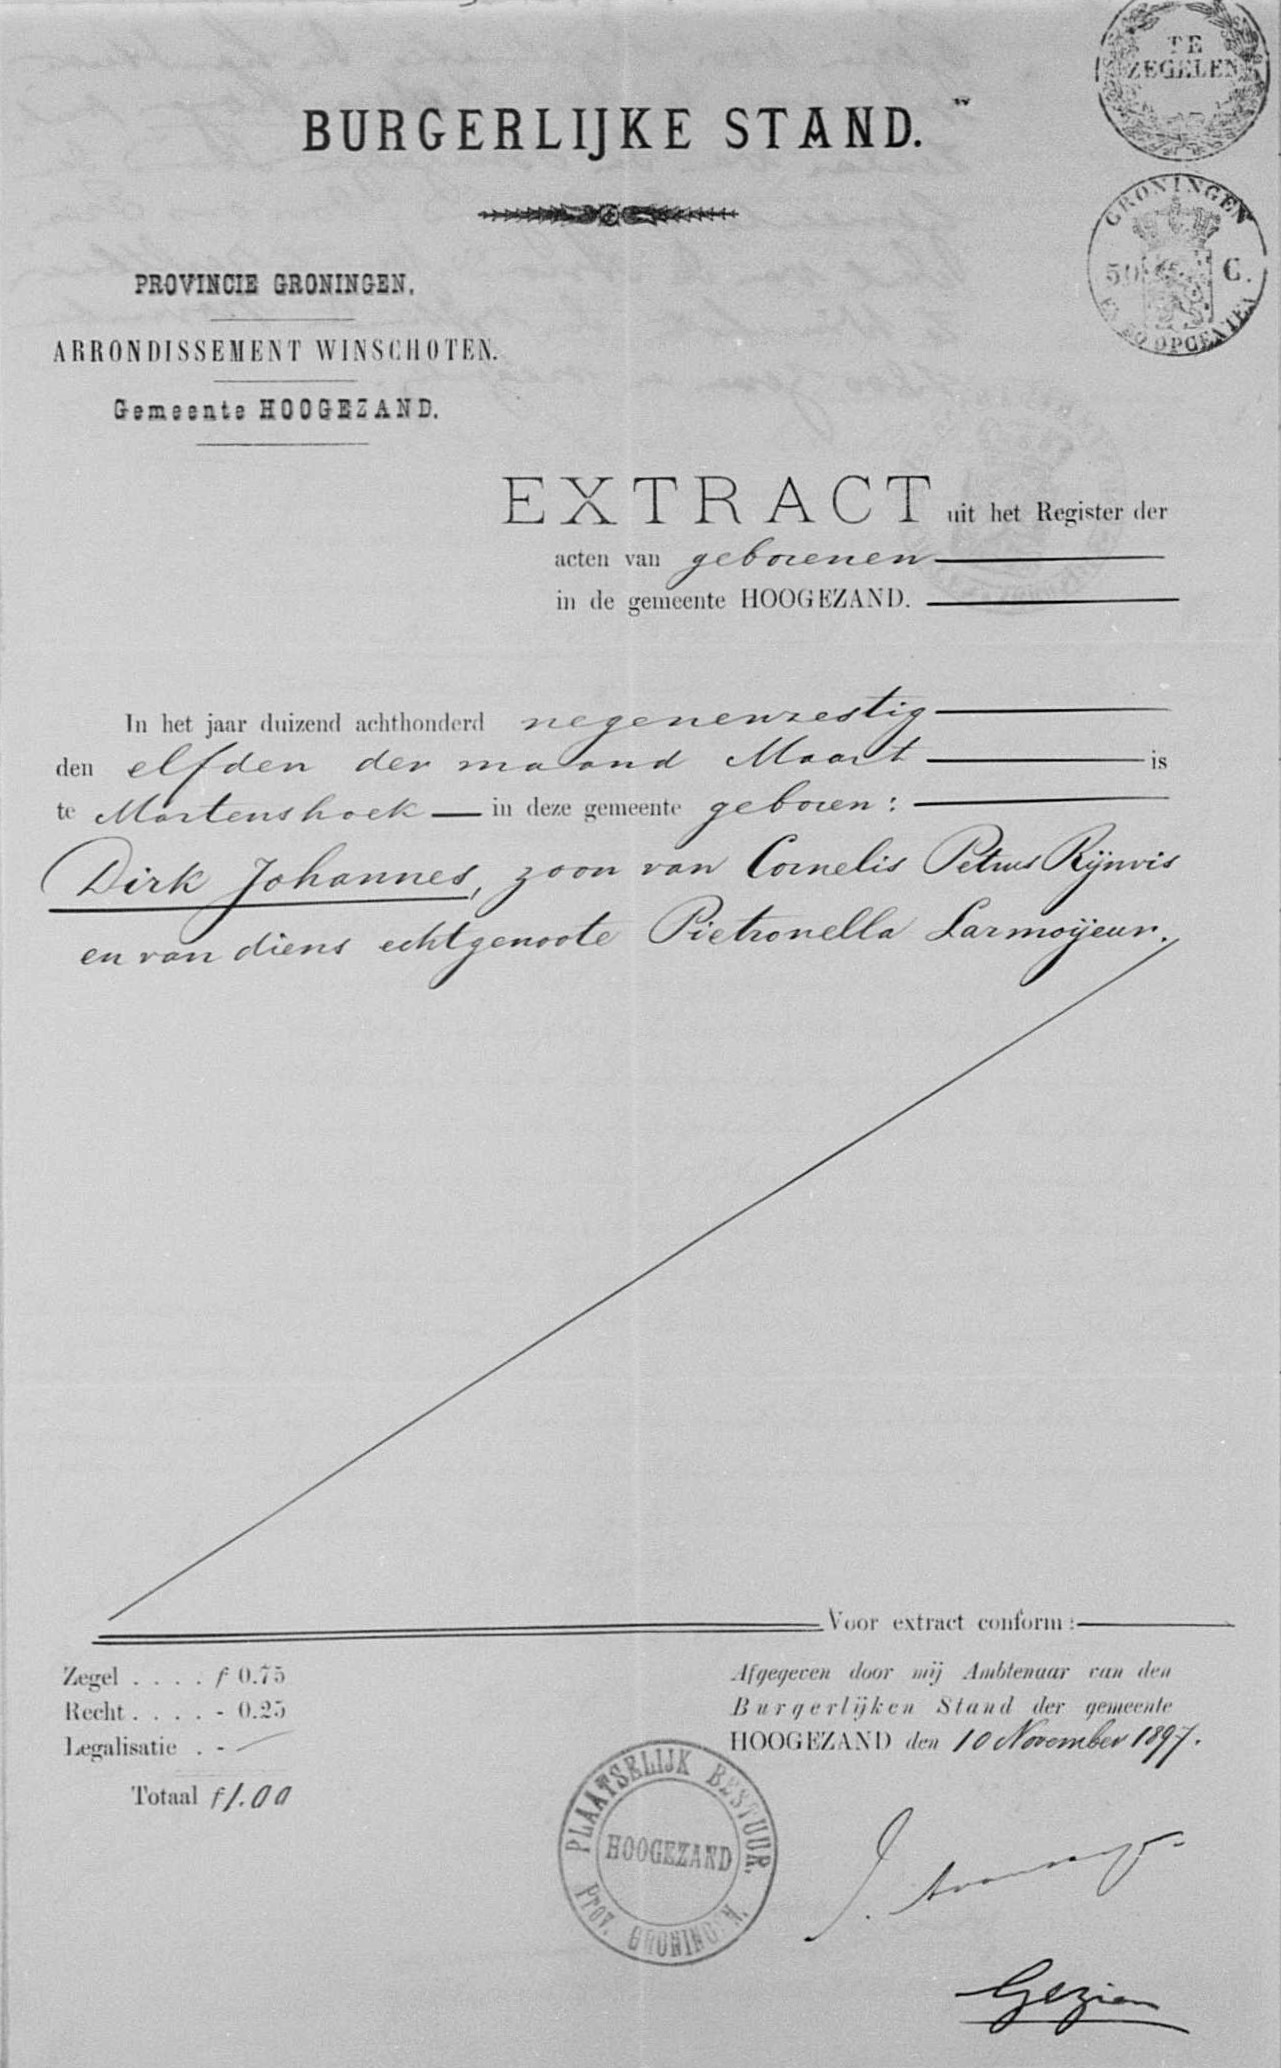 TE
ZEGELEN
BURGERLIJKE STAND.
GRONINGEN
50 C.
EN 50 OPCENTEN
PROVINCIE GRONINGEN.
ARRONDISSEMENT WINSCHOTEN.
Gemeente HOOGEZAND.
EXTRACT uit het Register der
acten van geborenen
in de gemeente HOOGEZAND.
In het jaar duizend achthonderd negenenzestig
den elfden der maand Maart is
te Martenshoek in deze gemeente geboren:
Dirk Johannes, zoon van Cornelis Petrus Rijnvis
en van diens echtgenoote Pietronella Larmoÿeur.
Voor extract conform:
Zegel . . . . f 0.75
Recht . . . . - 0.25
Legalisatie . -
Totaal f 1.00
Afgegeven door mij Ambtenaar van den
Burgerlijken Stand der gemeente
HOOGEZAND den 10 November 1897.
PLAATSELIJK BESTUUR.
HOOGEZAND
PROV. GRONINGEN.
Gezien